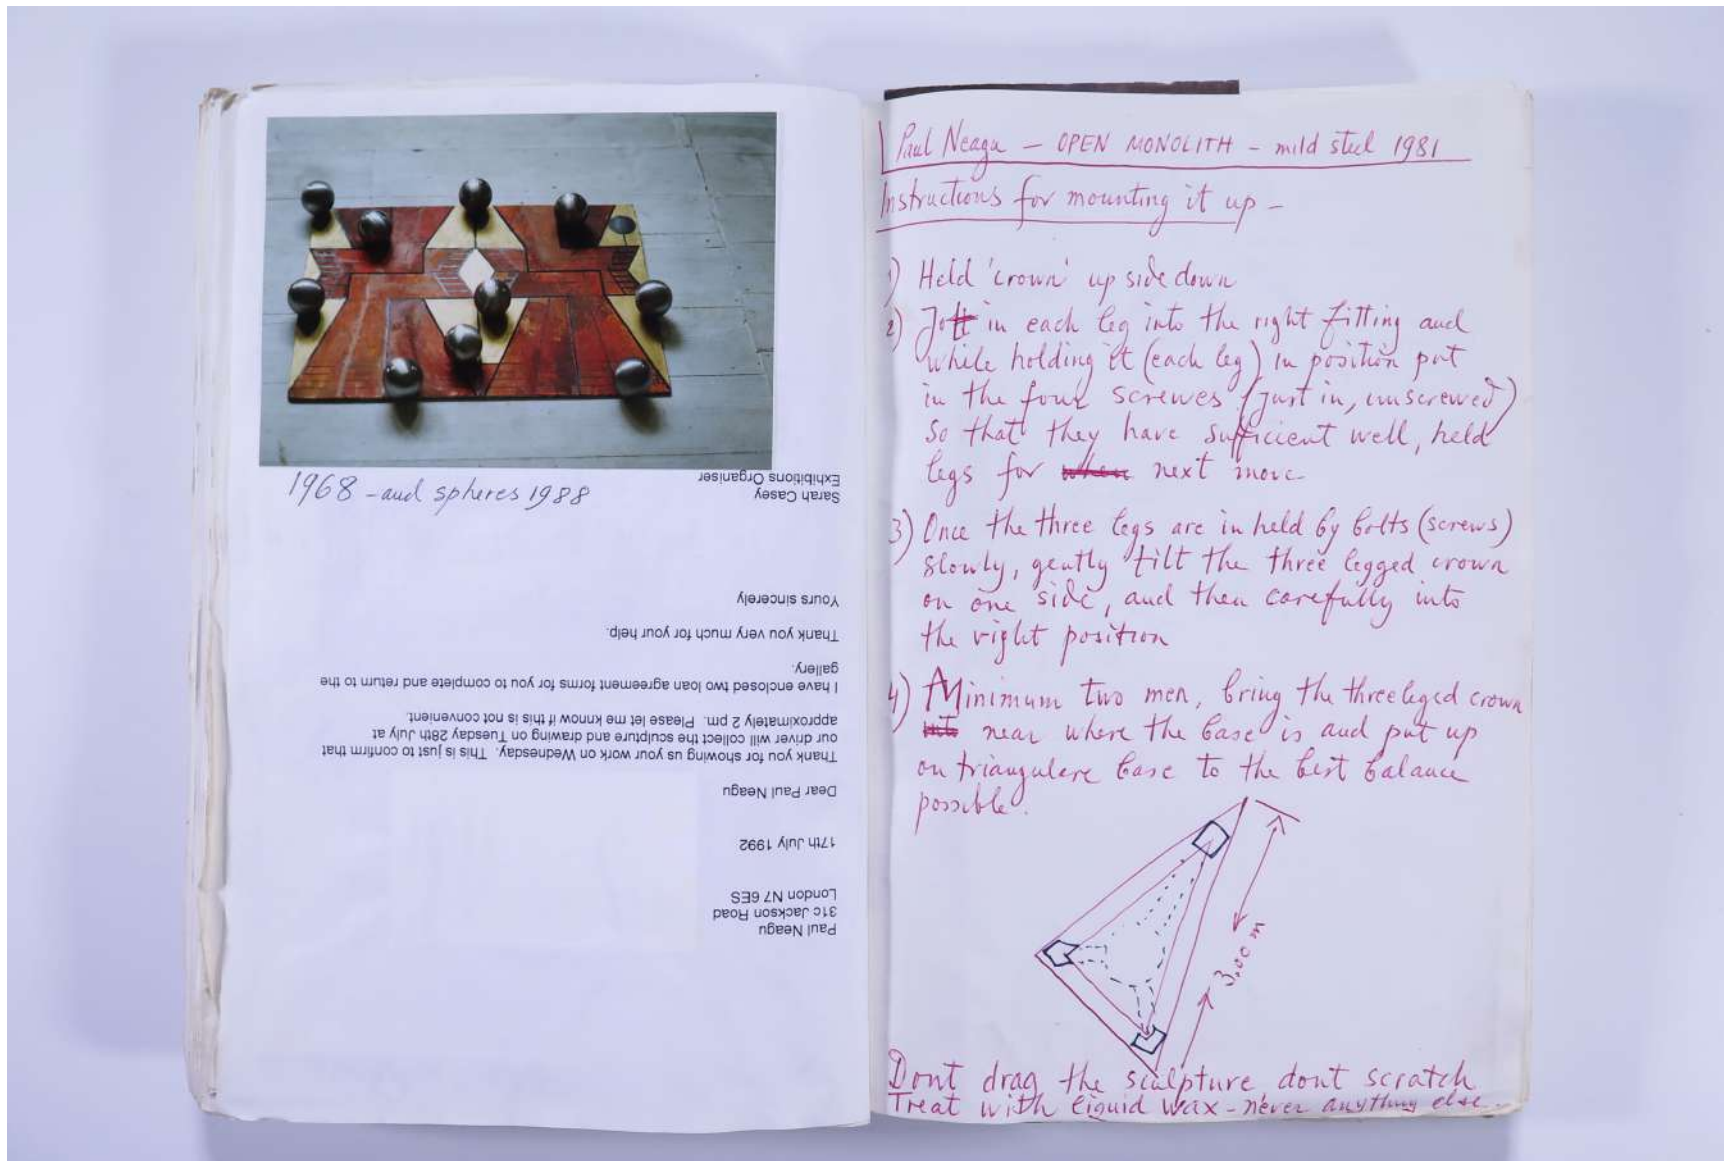 1968 - and spheres 1988
Paul Neagu
31c Jackson Road
London N7 6ES
17th July 1992
Dear Paul Neagu
Thank you for showing us your work on Wednesday. This is just to confirm that
our driver will collect the sculpture and drawing on Tuesday 28th July at
approximately 2 pm. Please let me know if this is not convenient.
I have enclosed two loan agreement forms for you to complete and return to the
gallery.
Thank you very much for your help.
Yours sincerely
Sarah Casey
Exhibitions Organiser
Paul Neagu - OPEN MONOLITH - mild steel 1981
Instructions for mounting it up -
1) Held 'crown' up side down
2) in each leg into the right fitting and
while holding it (each leg) in position put
in the four screwes (just in, unscrewed)
so that they have sufficient well, held
legs for next move
3) Once the three legs are in held by bolts (screws)
slowly, gently tilt the three legged crown
on one side, and then carefully into
the right position
4) Minimum two men, bring the threeleged crown
near where the base is and put up
on triangulare base to the best balance
possible.
3,00 m
Dont drag the sculpture dont scratch
Treat with liquid wax - never anything else -